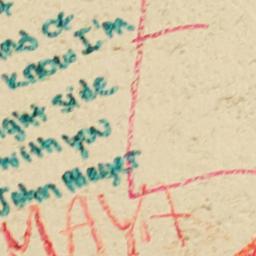 and ok
know I'm
ight side
with you
John Mayer
MAYA